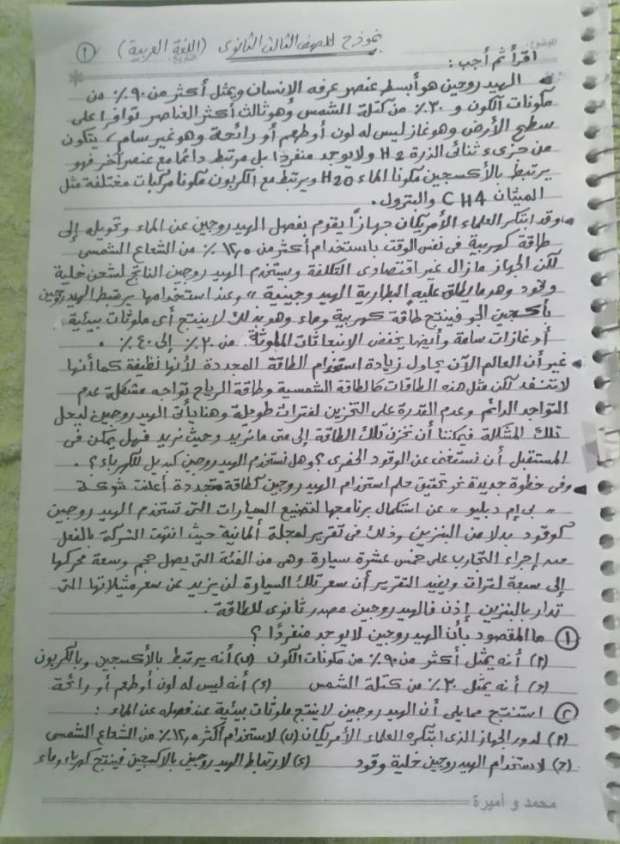 نموذج للصف الثالث الثانوى (اللغة العربية) ①
اقرأ ثم أجب :
الهيدروجين هو أبسط عنصر عرفه الإنسان ويمثل أكثر من ٩٠٪ من
مكونات الكون و ٣٠٪ من كتلة الشمس وهو ثالث أكثر العناصر توافرا على
سطح الأرض وهو غاز ليس له لون أو طعم أو رائحة وهو غير سام، يتكون
من جزىء ثنائى الذرة H2 ولا يوجد منفردا بل مرتبط دائما مع عنصر آخر فهو
يرتبط بالأكسجين مكونا الماء H2O ويرتبط مع الكربون مكونا مركبات مختلفة مثل
الميثان CH4 والبترول .
وقد ابتكر العلماء الأمريكان جهازاً يقوم بفصل الهيدروجين عن الماء وتحويله إلى
طاقة كهربية فى نفس الوقت باستخدام أكثر من ١٢,٥٪ من الشعاع الشمسى
لكن الجهاز مازال غير اقتصادى التكلفة ويستخدم الهيدروجين الناتج لشحن خلية
وقود وهو ما يطلق عليه البطارية الهيدروجينية "، وعند استخدامها يرتبط الهيدروجين
بأكسجين الجو فينتج طاقة كهربية وماء وهو بذلك لا ينتج أى ملوثات بيئية
أو غازات سامة وأيضا يخفض الانبعاثات الملوثة من ٢٠٪ إلى ٤٠٪ .
غير أن العالم الآن يحاول زيادة استخدام الطاقة المجددة لأنها نظيفة كما أنها
لا تنفد لكن مثل هذه الطاقات كالطاقة الشمسية وطاقة الرياح تواجه مشكلة عدم
التواجد الدائم وعدم القدرة على التخزين لفترات طويلة وهنا يأتى الهيدروجين ليحل
تلك المشكلة فيمكننا أن نخزن تلك الطاقة إلى متى ما نريد وحيث نريد فهل يمكن فى
المستقبل أن نستغنى عن الوقود الحفرى ؟ وهل نستخدم الهيدروجين كبديل للكهرباء ؟ .
وفى خطوة جديدة نحو تحقيق حلم استخدام الهيدروجين كطاقة متجددة أعلنت شركة
" بى إم دبليو " عن استكمال برنامجها لتصنيع السيارات التى تستخدم الهيدروجين
كوقود بدلا من البنزين وذلك فى تقرير لمجلة ألمانية حيث انتهت الشركة بالفعل
من إجراء التجارب على خمس عشرة سيارة وهى من الفئة التى يصل حجم وسعة محركها
إلى سبعة لترات ويفيد التقرير أن سعر تلك السيارة لن يزيد عن سعر مثيلاتها التى
تدار بالبنزين إذن فالهيدروجين مصدر ثانوى للطاقة .
① ما المقصود بأن الهيدروجين لا يوجد منفردًا ؟
(أ) أنه يمثل أكثر من ٩٠٪ من مكونات الكون (ب) أنه يرتبط بالأكسجين وبالكربون
(ج) أنه يمثل ٣٠٪ من كتلة الشمس (د) أنه ليس له لون أو طعم أو رائحة
② استنتج مما يلى أن الهيدروجين لا ينتج ملوثات بيئية عند فصله عن الماء :
(أ) لدور الجهاز الذى ابتكره العلماء الأمريكان (ب) لاستخدام أكثر من ١٢,٥٪ من الشعاع الشمسى
(ج) لاستخدام الهيدروجين خلية وقود (د) لارتباط الهيدروجين بالأكسجين فينتج كهرباء وماء
محمد و أميرة